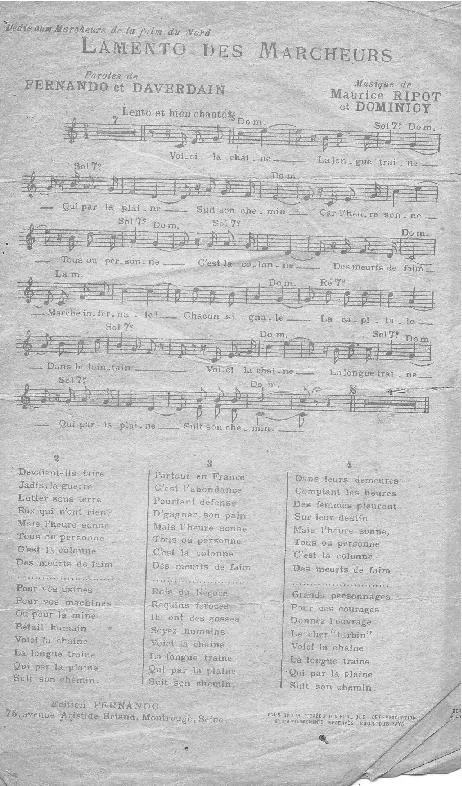 Dédié aux Marcheurs de la faim du Nord
LAMENTO DES MARCHEURS
Paroles de
FERNANDO et DAVERDAIN
Musique de
Maurice RIPOT
et DOMINICY
Lento et bien chanté
7
Do m.
Sol 7e Do m.
Voi.ci la chaî.ne La lon.gue traî.ne
Sol 7e
Do m.
Qui par la plai.ne Suit son che.min Car l'heu.re son.ne
Sol 7e Do m. Sol 7e Do m.
Tous ou per.son.ne C'est la co.lon.ne Des meurts de faim
La m. Do m. Ré 7e
Marche in.fer.na.le! Chacun si gau.le La ca.pi.ta.le
Sol 7e Do m. Sol 7e Do m.
Dans le loin.tain Voi.ci la chaî.ne La longue traî.ne
Sol 7e Do m.
Qui par la plai.ne Suit son che.min.
2
Devaient-ils faire
Jadis la guerre
Lutter sous terre
Eux qui n'ont rien?
Mais l'heure sonne
Tous ou personne
C'est la colonne
Des meurts de faim
Pour vos usines
Pour vos machines
Ou pour la mine
Bétail humain
Voici la chaîne
La longue traîne
Qui par la plaine
Suit son chemin.
3
Partout en France
C'est l'abondance
Pourtant défense
D'gagner son pain
Mais l'heure sonne
Tous ou personne
C'est la colonne
Des meurts de faim
Rois du Négoce
Requins féroces
Ils ont des gosses
Soyez humains
Voici la chaîne
La longue traîne
Qui par la plaine
Suit son chemin.
4
Dans leurs demeures
Comptant les heures
Des femmes pleurent
Sur leur destin
Mais l'heure sonne,
Tous ou personne
C'est la colonne
Des meurts de faim
Grands personnages
Pour des courages
Donnez l'ouvrage
Le cher "turbin"
Voici la chaîne
La longue traîne
Qui par la plaine
Suit son chemin.
Edition FERNANDO
76, avenue Aristide Briand, Montrouge, Seine.